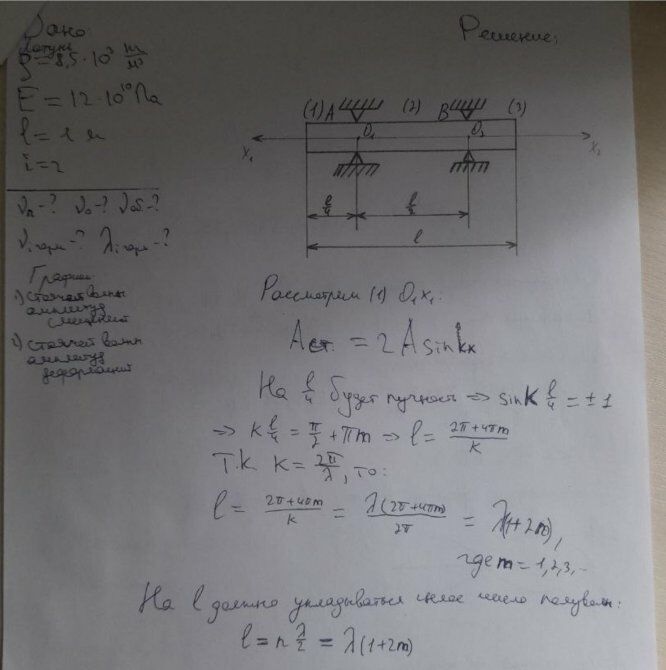 Дано:
Латунь
ρ = 8,5·10³ кг/м³
E = 12·10¹⁰ Па
l = 1 м
i = 2
νп-? ν0-? νоб-?
νi гарм-? λi гарм-?
Графики:
1) стоячей волны
амплитуд
смещений
2) стоячей волны
амплитуд
деформаций
Решение:
(1) A (2) B (3)
x₁ O₁ O₂ x₂
l/4 l/2
l
Рассмотрим (1) O₁x₁:
Aст. = 2A sin kx
На l/4 будет пучность => sin k l/4 = ±1
=> k l/4 = π/2 + πm => l = (2π+4πm)/k
Т.к. k = 2π/λ, то:
l = (2π+4πm)/k = λ(2π+4πm)/2π = λ(1+2m),
где m = 1,2,3,..
На l должно укладываться целое число полуволн:
l = n λ/2 = λ(1+2m)